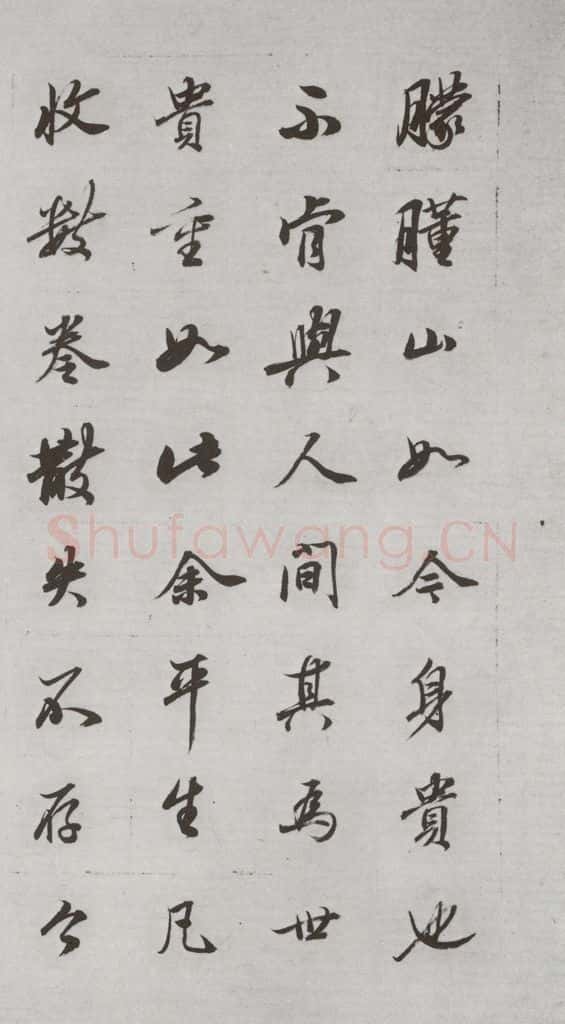 朦朣山如今身貴也
不肯與人間其為世
貴重如此余平生凡
收數卷散失不存今
Shufawang.CN